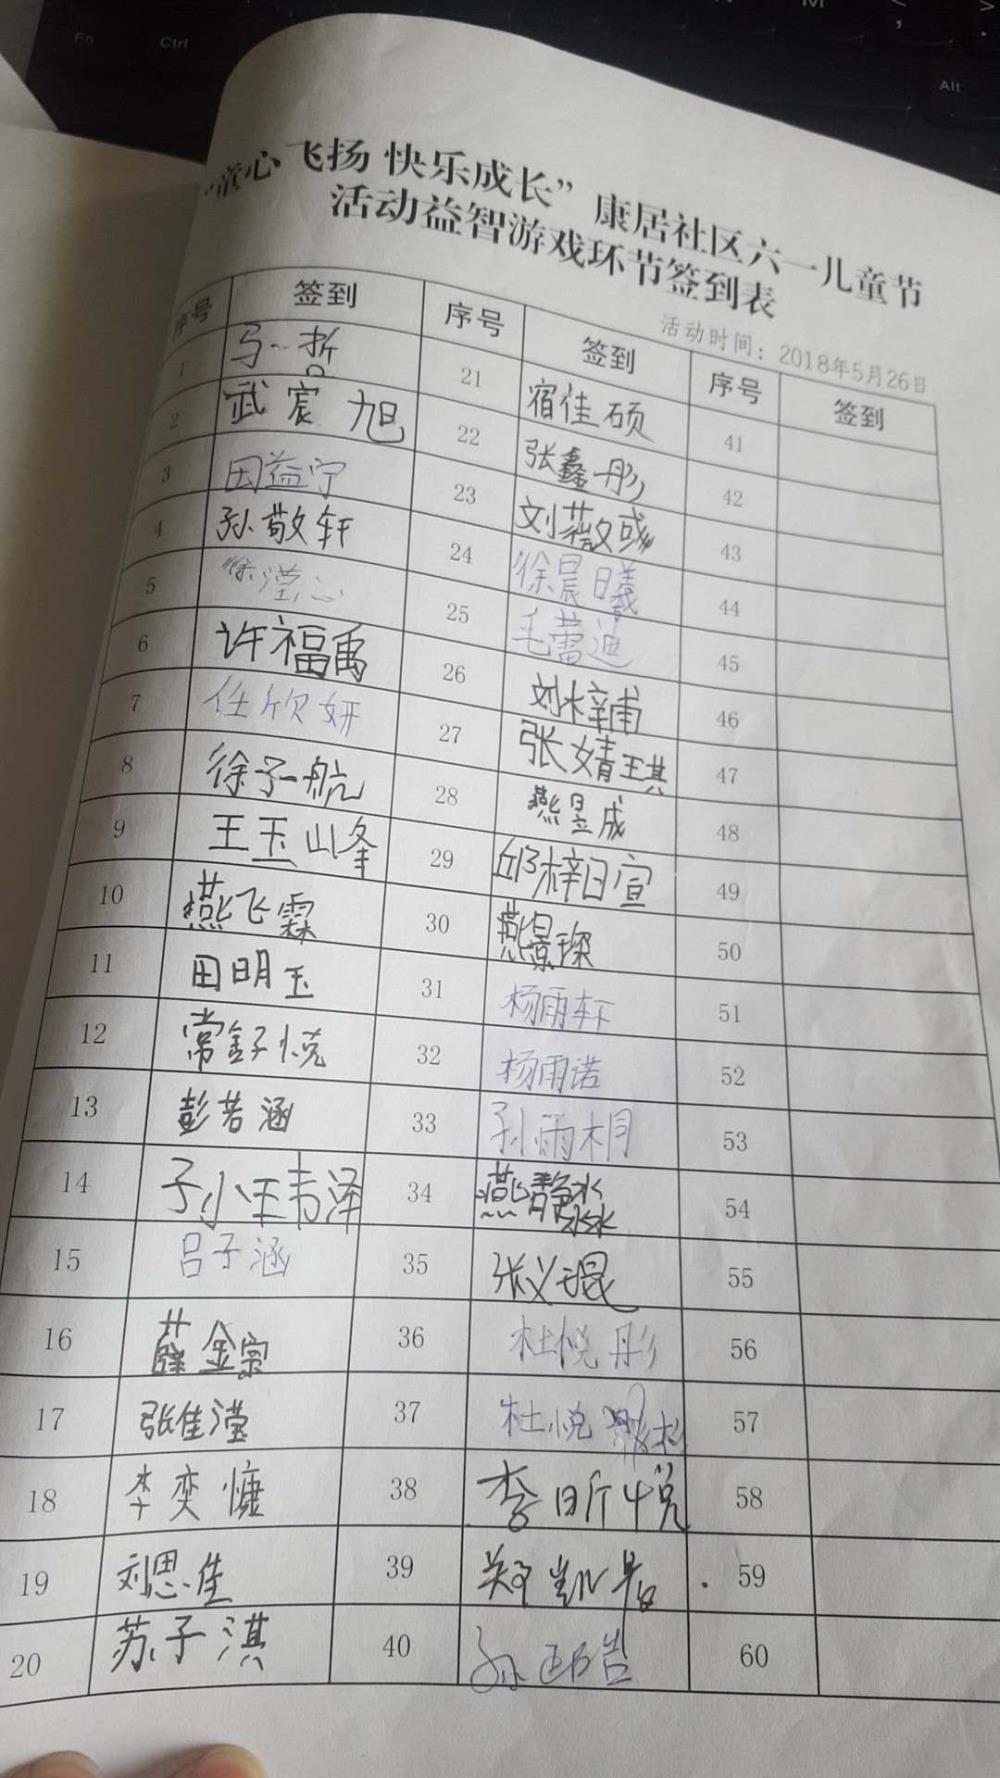 “童心飞扬 快乐成长”康居社区六一儿童节
活动益智游戏环节签到表
活动时间：2018年5月26日
序号 签到 序号 签到 序号 签到
1 马一哲 21 宿佳硕 41
2 武宸旭 22 张鑫彤 42
3 田益宁 23 刘薇彧 43
4 孙敬轩 24 徐晨曦 44
5 徐滢心 25 毛蕾迪 45
6 许福禹 26 刘梓甫 46
7 任欣妍 27 张婧琪 47
8 徐子航 28 燕昱成 48
9 王玉峰 29 邱梓暄 49
10 燕飞霖 30 燕景琛 50
11 田明玉 31 杨雨轩 51
12 常钰悦 32 杨雨诺 52
13 彭若涵 33 孙雨桐 53
14 孙玮泽 34 燕静淼 54
15 吕子涵 35 张义琨 55
16 薛金宗 36 杜悦彤 56
17 张佳滢 37 杜悦 57
18 李奕慷 38 李昕悦 58
19 刘思佳 39 郑凯 59
20 苏子淇 40 孙 60
Fn
Ctrl
Alt
M